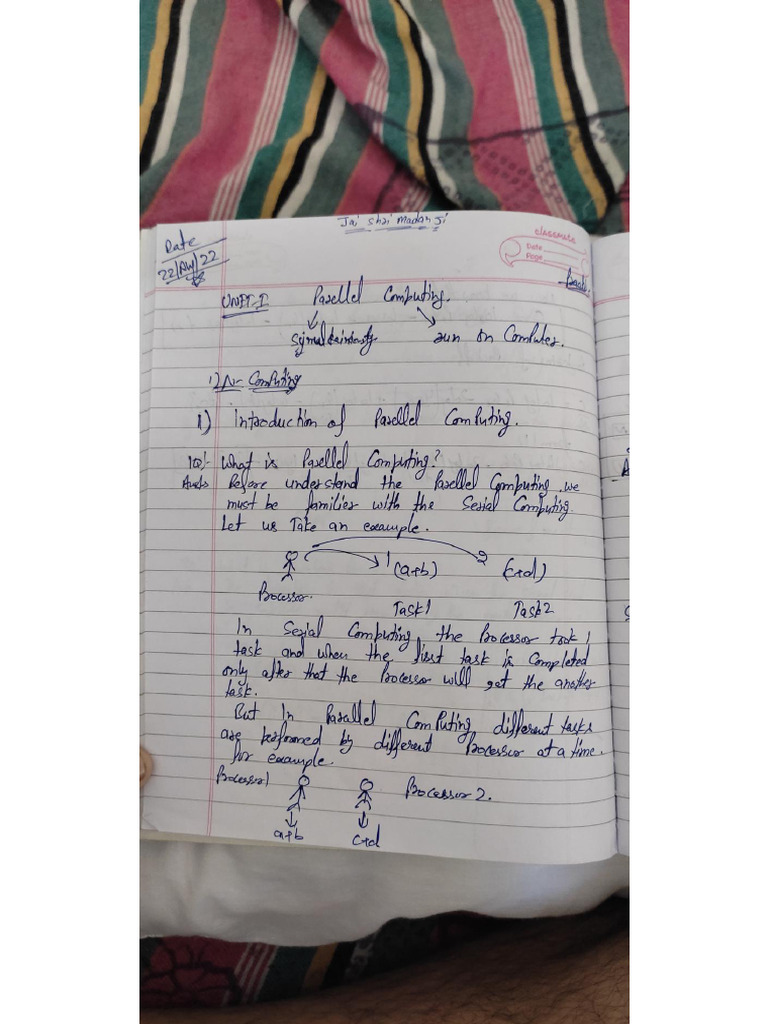 Jai Shri Madan Ji
classmate
Date
Page
Date
22/
UNIT-I Parellel Computing.
run on Computer.
1) Computing
1) Introduction of Parellel Computing.
1Q:- What is Parellel Computing?
Ans:- Before understand the Parellel Computing we
must be familier with the Serial Computing.
Let us Take an example.
1 (a+b) 2 (c+d)
Processor. Task1 Task2
In Serial Computing, the Processor took 1
task and when the first task is Completed
only after that the Processor will get the another
task.
But In Parallel Computing different tasks
are performed by different Processor at a time.
for example.
Processor1 Processor 2.
a+b c+d